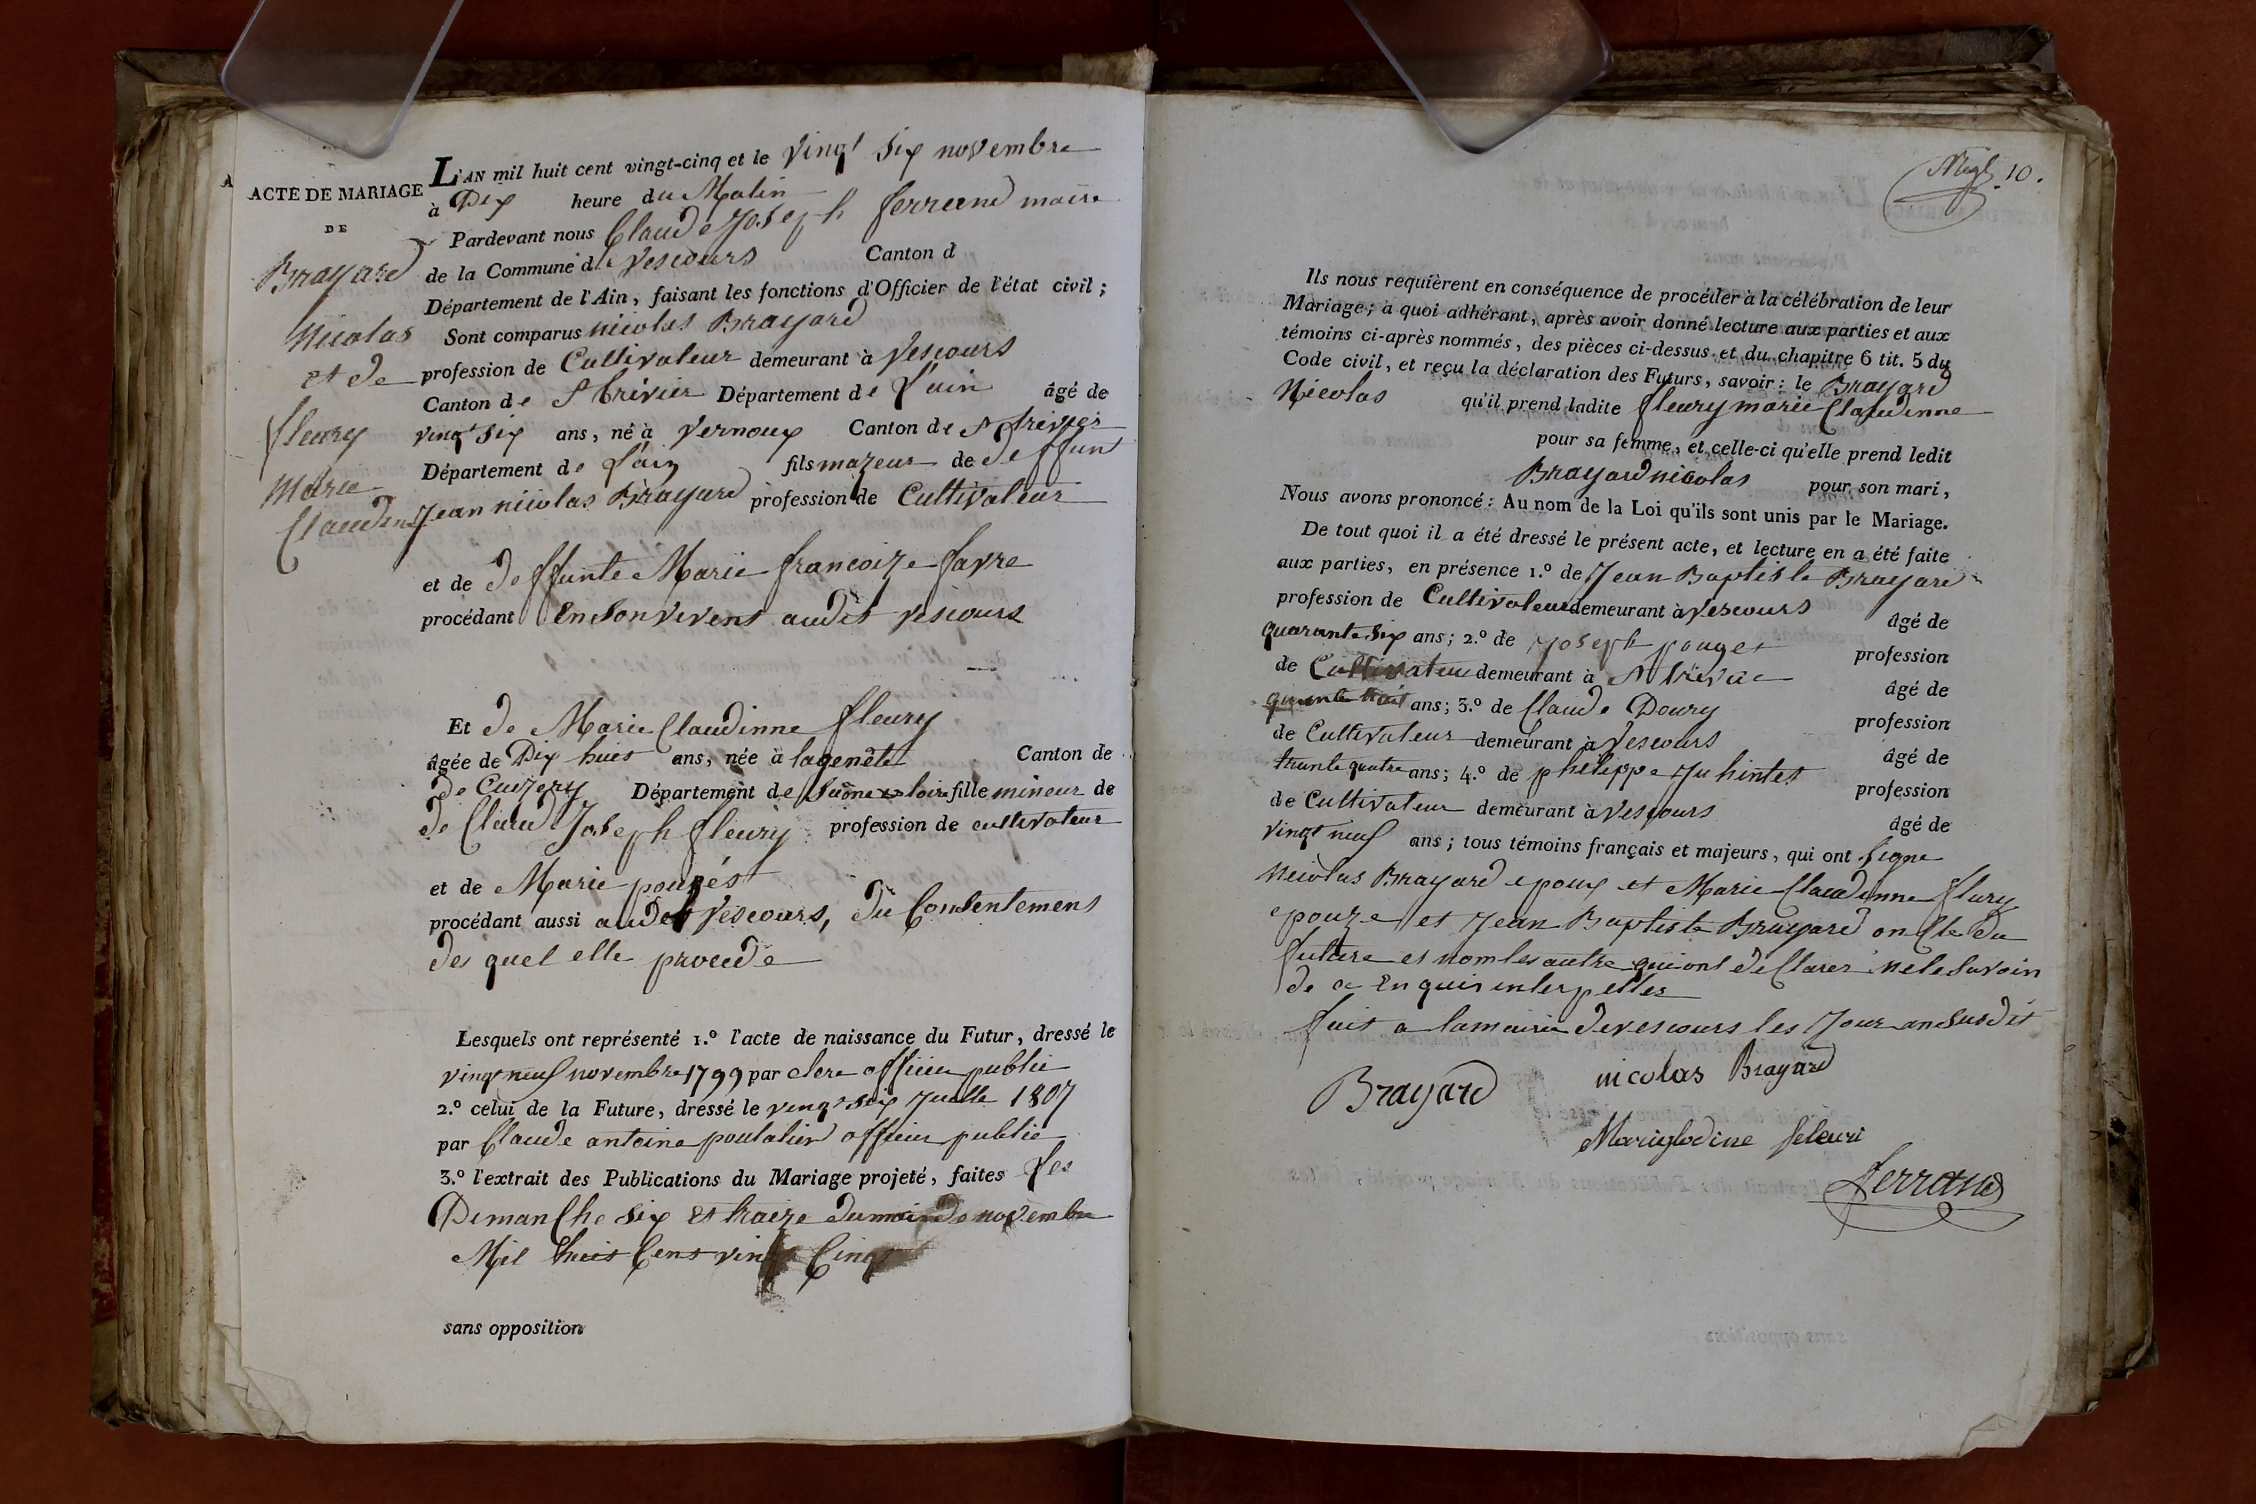 ACTE DE MARIAGE
DE
Brayard
Nicolas
et de
fleury
Marie
Claudine
L'AN mil huit cent vingt-cinq et le vingt six novembre
à Dix heure du Matin
Pardevant nous Claude Joseph ferrand maire
de la Commune de Vescours Canton d
Département de l'Ain, faisant les fonctions d'Officier de l'état civil ;
Sont comparus nicolas Brayard
profession de Cultivateur demeurant à Vescours
Canton de St trivier Département de L'ain âgé de
vingt six ans, né à Vernoux Canton de St trivier
Département de L'ain fils mazeur de deffunt
Jean nicolas Brayard profession de Cultivateur
et de deffunte Marie francoize favre
procédant En Son vivent audit vescours
Et de Marie Claudinne fleury
âgée de Dix huit ans, née à lagenète Canton de
de Cuizery Département de Saône et loire fille mineur de
de Claude Joseph fleury profession de cultivateur
et de Marie
procédant aussi audit Vescours, du Consentemens
des quel elle procede
Lesquels ont représenté 1.º l'acte de naissance du Futur, dressé le
vingt neuf novembre 1799 par clere officier public
2.º celui de la Future, dressé le vingt six Juelle 1807
par Claude antoine officier public
3.º l'extrait des Publications du Mariage projeté, faites Les
Dimanche six Et traize du mois de novembre
Mil huit Cens vingt Cinq
sans opposition
10.
Ils nous requièrent en conséquence de procéder à la célébration de leur
Mariage ; à quoi adhérant, après avoir donné lecture aux parties et aux
témoins ci-après nommés, des pièces ci-dessus et du chapitre 6 tit. 5 du
Code civil, et reçu la déclaration des Futurs, savoir : le Brayard
Nicolas qu'il prend ladite fleury marie Claudinne
pour sa femme, et celle-ci qu'elle prend ledit
Brayard nicolas pour son mari,
Nous avons prononcé : Au nom de la Loi qu'ils sont unis par le Mariage.
De tout quoi il a été dressé le présent acte, et lecture en a été faite
aux parties, en présence 1.º de Jean Baptiste Brayard
profession de Cultivateur demeurant à Vescours âgé de
quarante six ans ; 2.º de Joseph profession
de Cultivateur demeurant à âgé de
ans ; 3.º de Claude Doury profession
de Cultivateur demeurant à Vescours âgé de
trante quatre ans ; 4.º de pheleppe profession
de Cultivateur demeurant à Vescours âgé de
vingt neuf ans ; tous témoins français et majeurs, qui ont Signe
Nicolas Brayard epoux et Marie Claudinne flury
epouze et Jean Baptiste Brayard oncle du
future et nom les autre qui ont de Clarer ne le Savoir
de ce Enquis interpelles
fait a la mairie de vescours les Jour an Susdit
Brayard nicolas Brayard
feleuri
ferrand